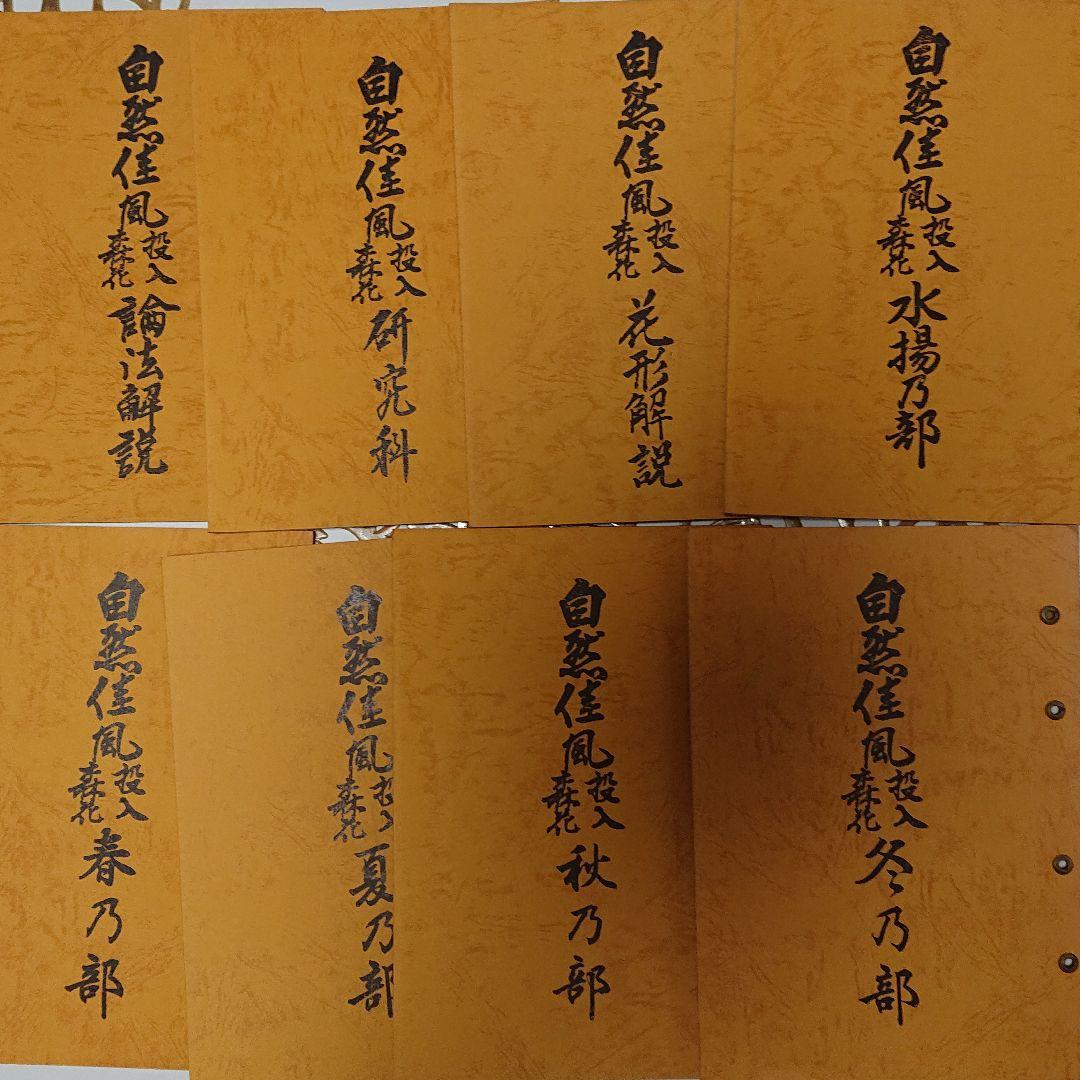 自然佳風投入森花論法解説
自然佳風投入森花研究科
自然佳風投入森花花形解説
自然佳風投入森花水揚乃部
自然佳風投入森花春乃部
自然佳風投入森花夏乃部
自然佳風投入森花秋乃部
自然佳風投入森花冬乃部